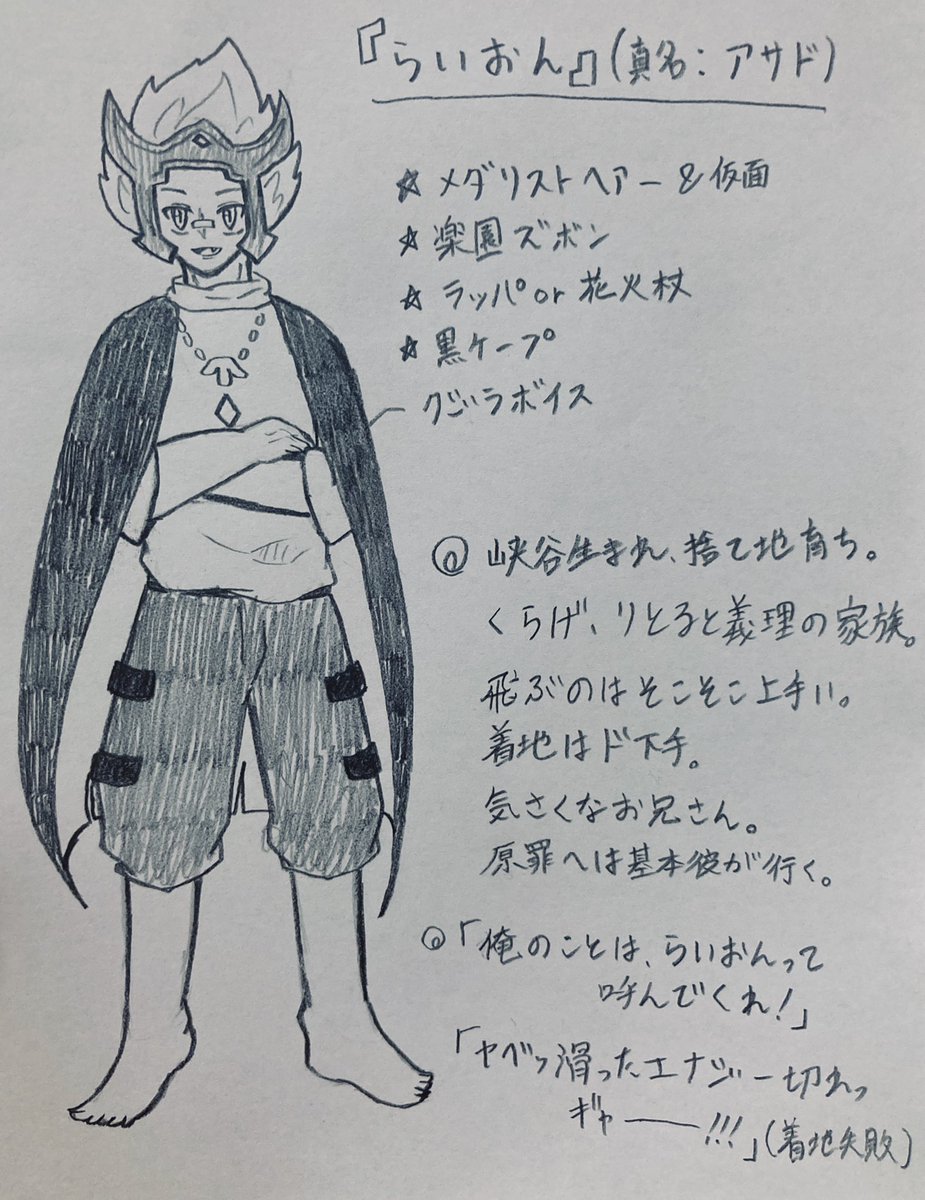 『らいおん』(真名：アサド)
☆メダリストヘアー＆仮面
☆楽園ズボン
☆ラッパor花火杖
☆黒ケープ
クジラボイス
◎峡谷生まれ、捨て地育ち。
くらげ、りとると義理の家族。
飛ぶのはそこそこ上手い。
着地はド下手。
気さくなお兄さん。
原罪へは基本彼が行く。
◎「俺のことは、らいおんって
呼んでくれ！」
「ヤベッ滑ったエナジー切れっ
ギャーーー!!!」(着地失敗)